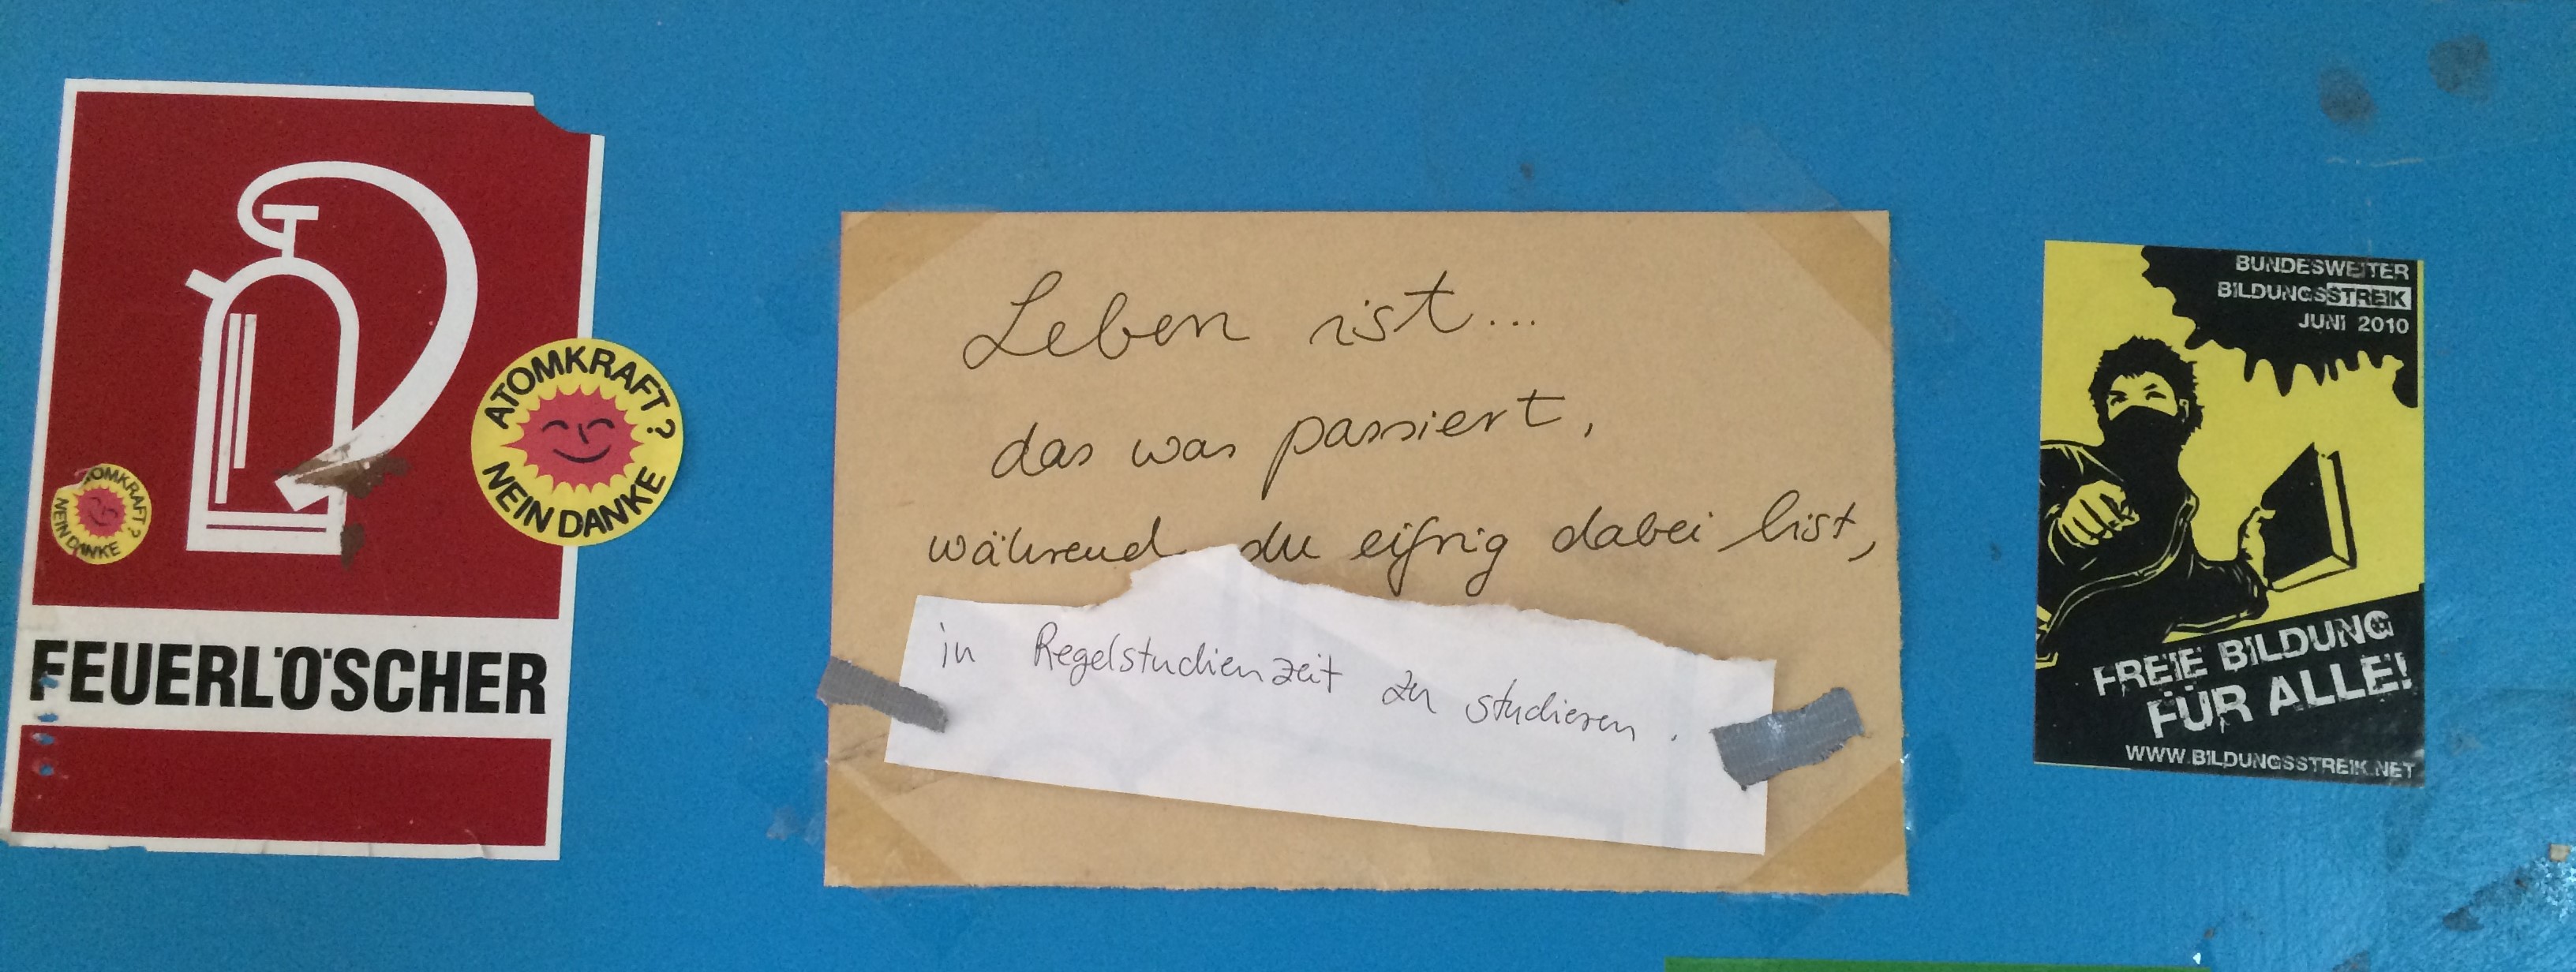 FEUERLÖSCHER
ATOMKRAFT?
NEIN DANKE
ATOMKRAFT?
NEIN DANKE
Leben ist...
das was passiert,
während du eifrig dabei bist,
in Regelstudienzeit zu studieren.
BUNDESWEITER
BILDUNGSSTREIK
JUNI 2010
FREIE BILDUNG
FÜR ALLE!
WWW.BILDUNGSSTREIK.NET